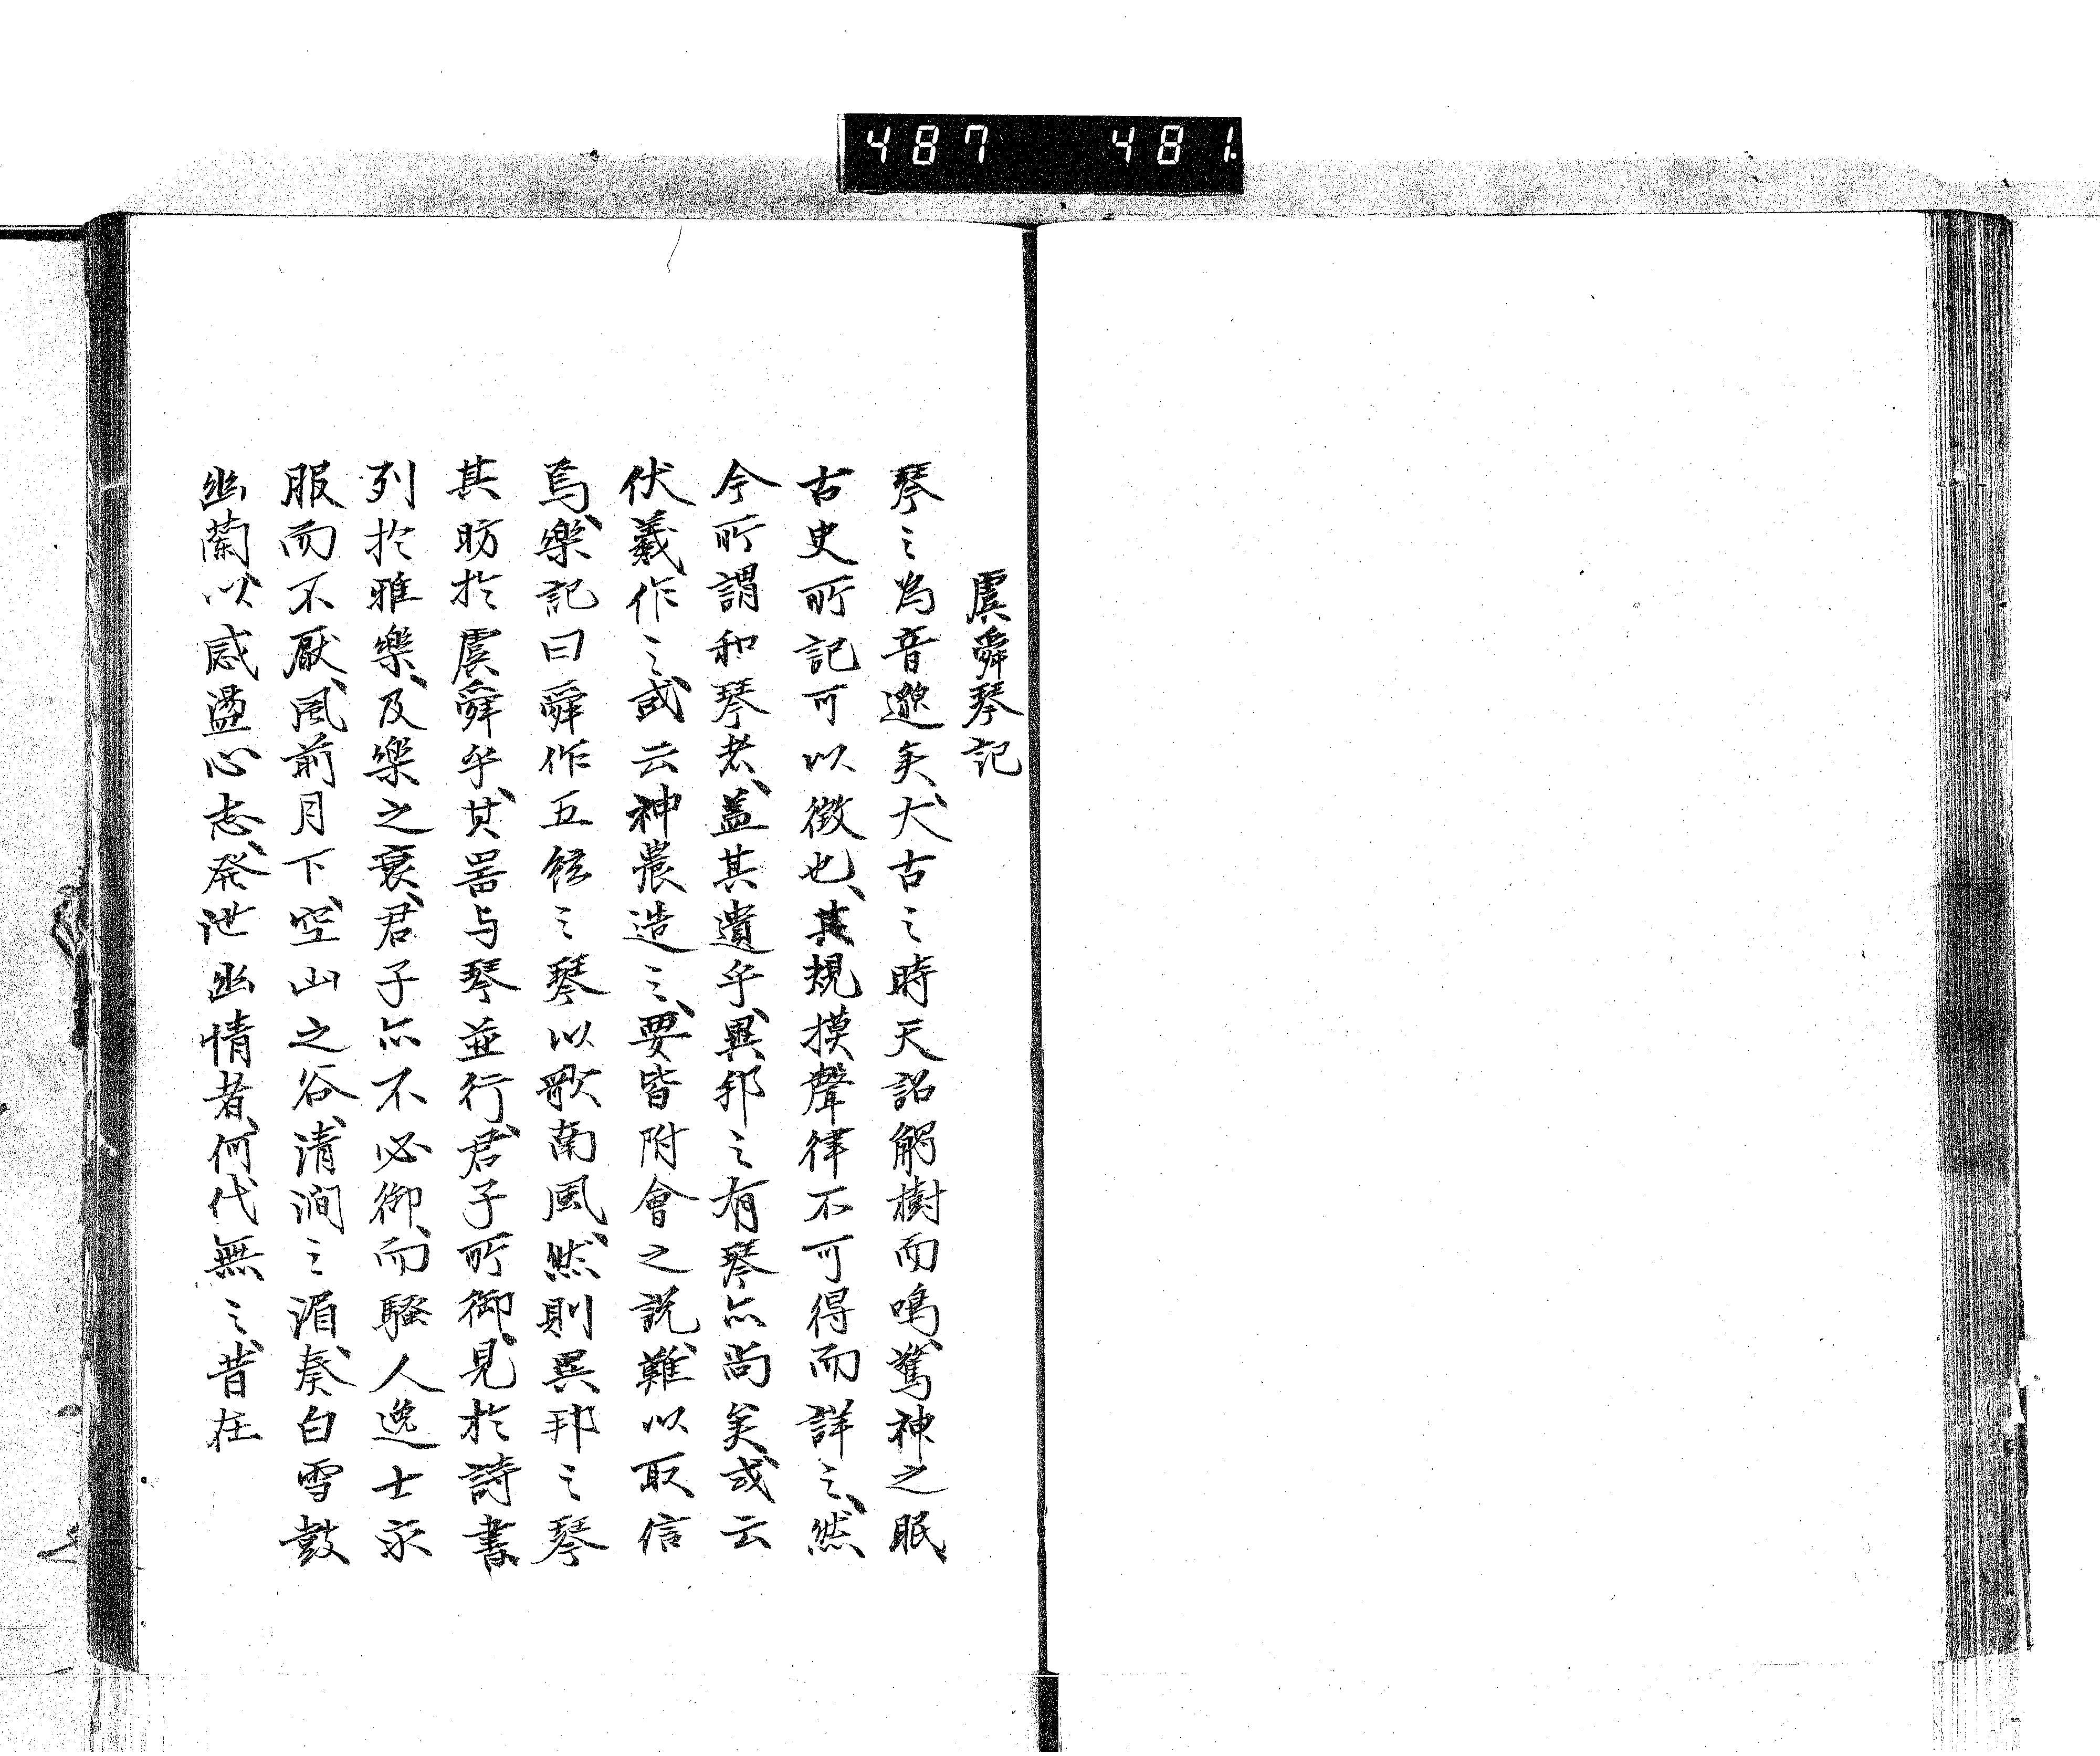 487 481
虞舜琴記
琴之為音邈矣、大古之時天詔觸樹而鳴、驚神之眠、
古史所記可以徴也、其規摸聲律不可得而詳之、然
今所謂和琴者、蓋其遺乎、異邦之有琴亦尚矣、或云
伏羲作之、或云神農造之、要皆附會之説、難以取信
焉、樂記曰舜作五絃之琴以歌南風、然則異邦之琴
其昉於虞舜乎、其噐与琴並行、君子所御、見於詩書、
列於雅樂、及樂之衰、君子亦不必御、而騷人逸士永
服而不厭、風前月下、空山之谷、清澗之湄、奏白雪鼓
幽蘭、以感盪心志、発泄幽情者、何代無之、昔在